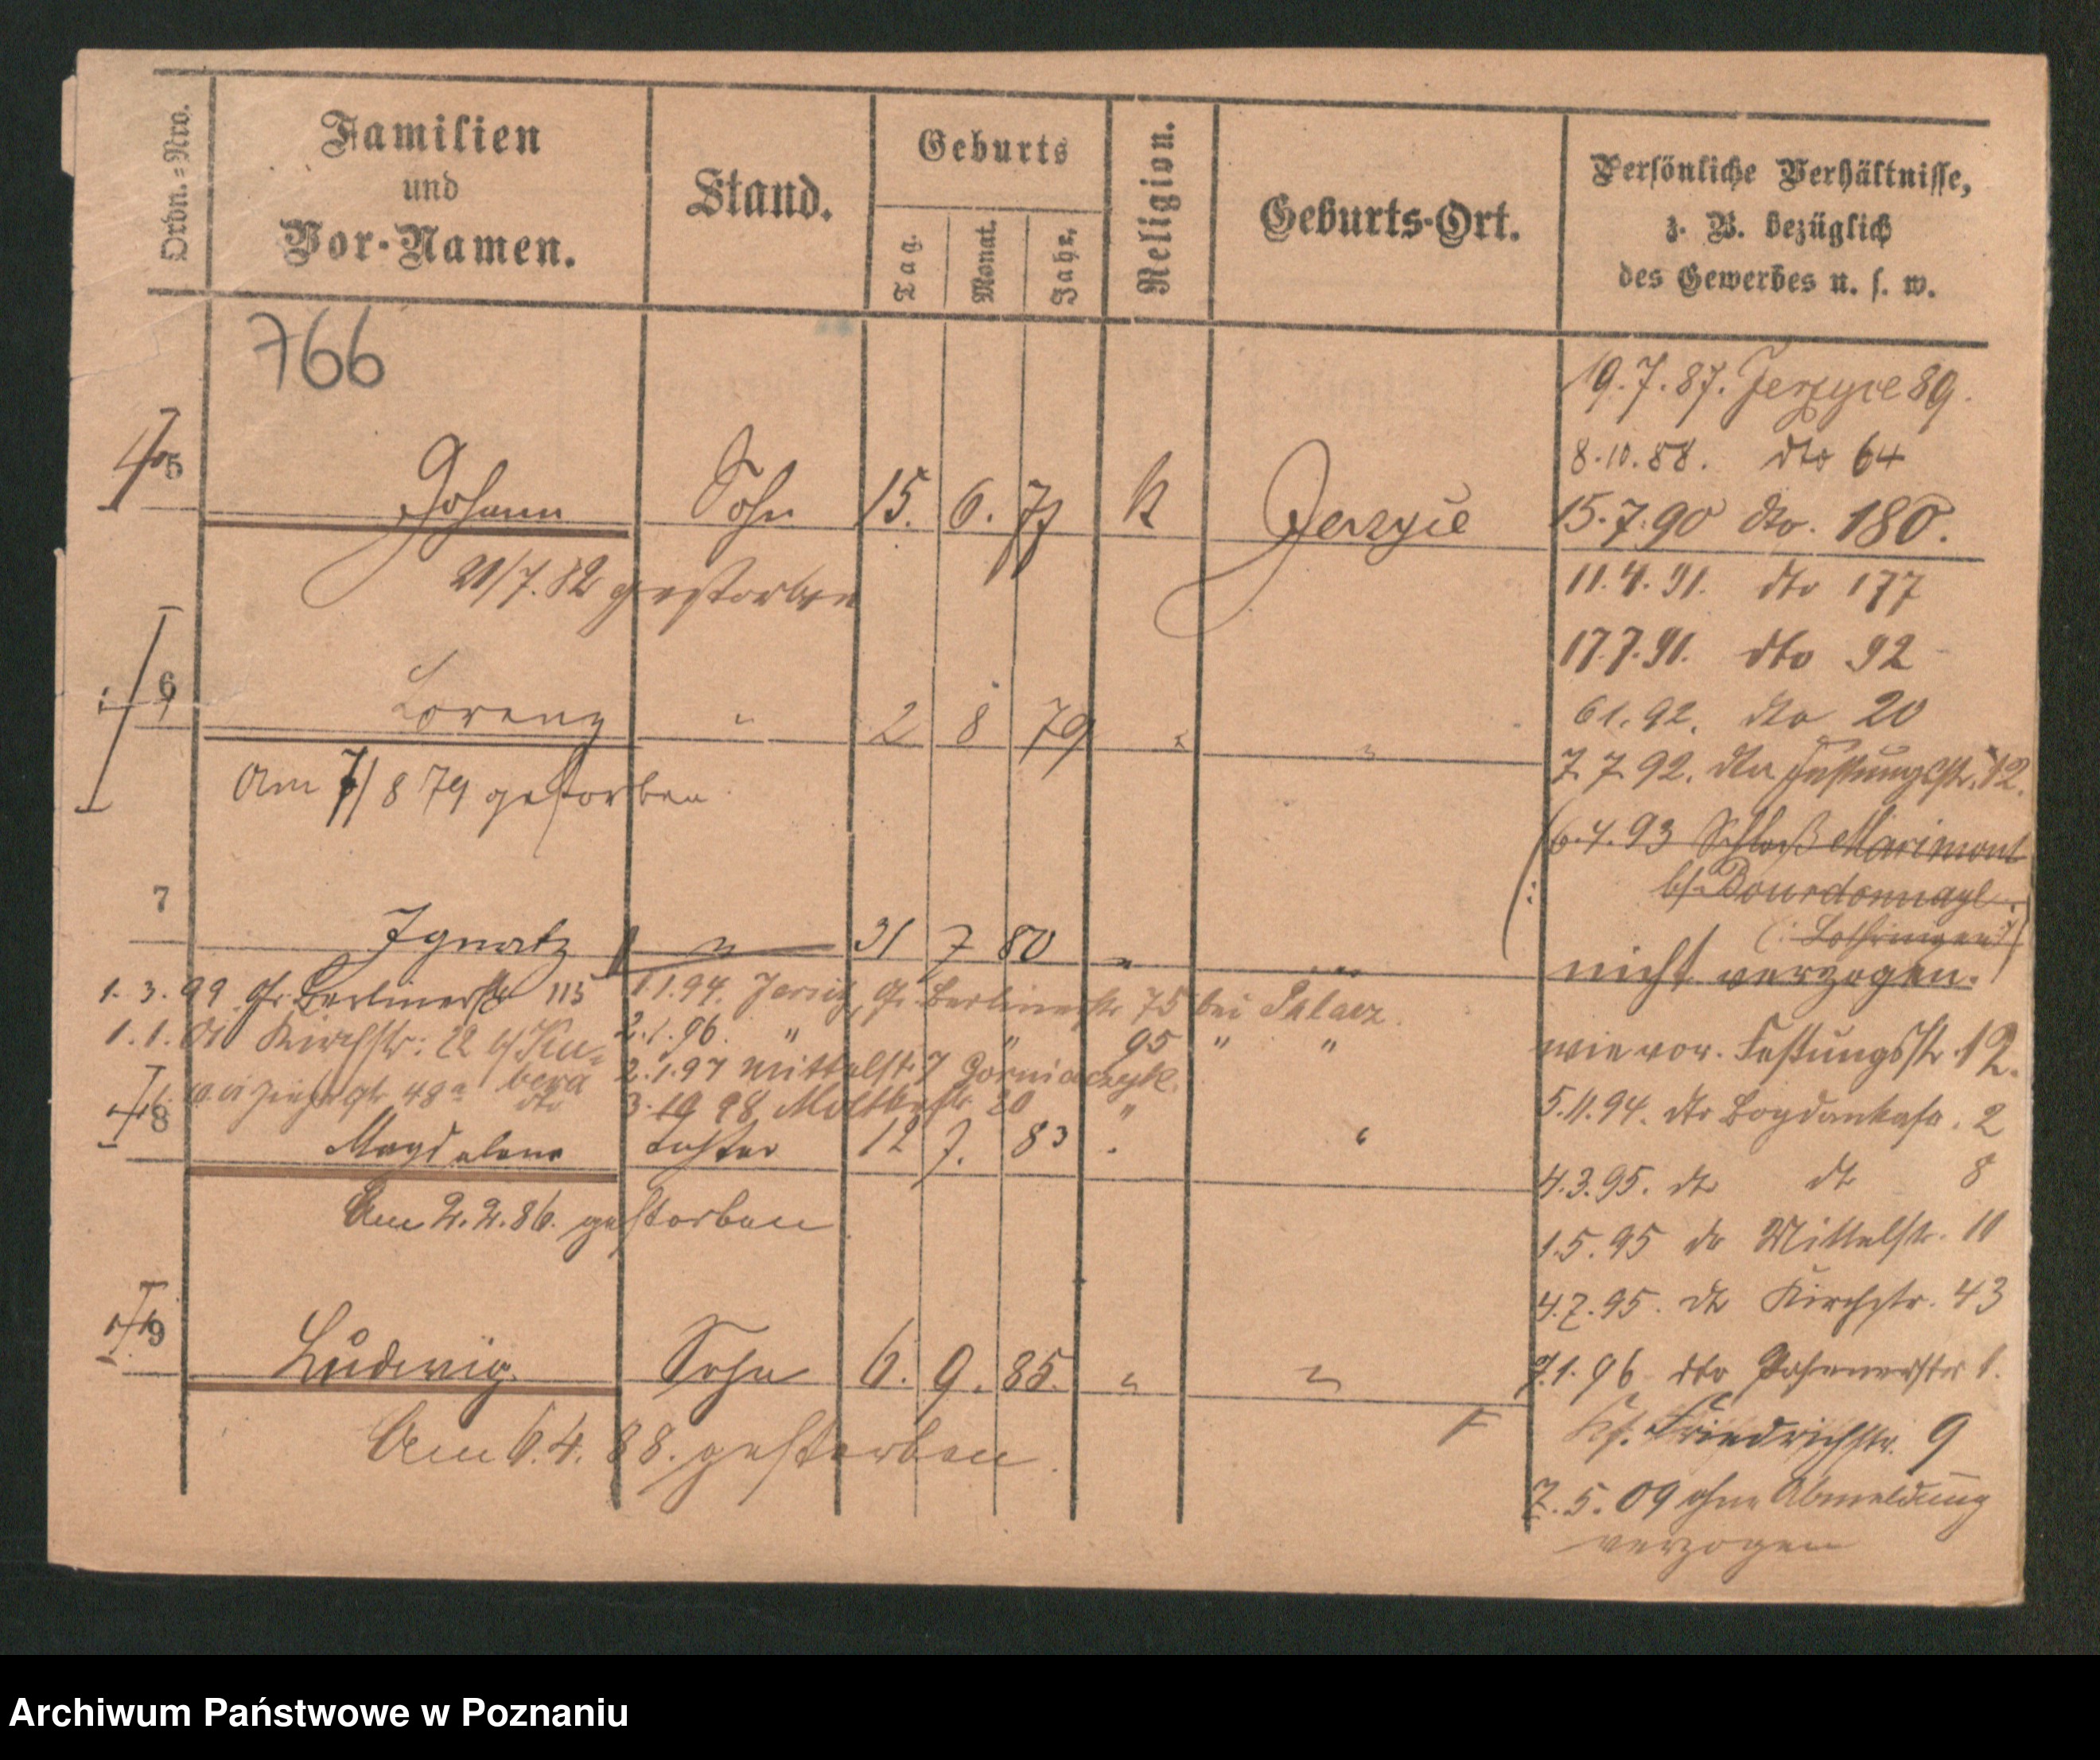 Ordn.-Nro.
Familien
und
Vor-Namen.
Stand.
Geburts
Tag.
Monat.
Jahr.
Religion.
Geburts-Ort.
Persönliche Verhältnisse,
z. B. bezüglich
des Gewerbes u. s. w.
766
19.7.87. Jerzyce 89.
8.10.88. dto 64
5 Johann Sohn 15. 6. 77 K Jerzyce
15.7.90 dto. 180.
21/7.82 gestorben
11.4.91. dto 177
17.7.91. dto 92
6 Lorenz " 2 8 79 " "
6 1. 92. dto 20
Am 7/8 79 gestorben
7 7 92. dto Festungsstr. 12.
6.4.93 Schloß Marimont
b/ Bourdonnaye
(: Lothringen :)
7 Ignatz " 31 7 80 " "
nicht verzogen.
1. 3. 99 Gr. Berlinerstr 115
1.1.94. Jersitz, Gr. Berlinerstr 75 bei
1.1.01 Kirchstr: 22 b/
2.1.96. " " 95 " "
wie vor. Festungsstr. 12.
2.1.97 Mittelstr 7
48a dto
3. 10 98 Moltkestr. 20 "
5.11.94. dto Bogdankastr. 2
8 Magdalena Tochter 12 7. 83 " "
4.3.95. dto dto 8
Am 2.2.86. gestorben
1.5.95 do Mittelstr. 11
4.7.95. dto Kirchstr. 43
9 Ludwig. Sohn 6. 9. 85. " "
7.1.96 dto Posenerstr 1.
Am 6.4.88. gestorben.
Friedrichstr. 9
7.5.09 ohne Abmeldung
verzogen
Archiwum Państwowe w Poznaniu